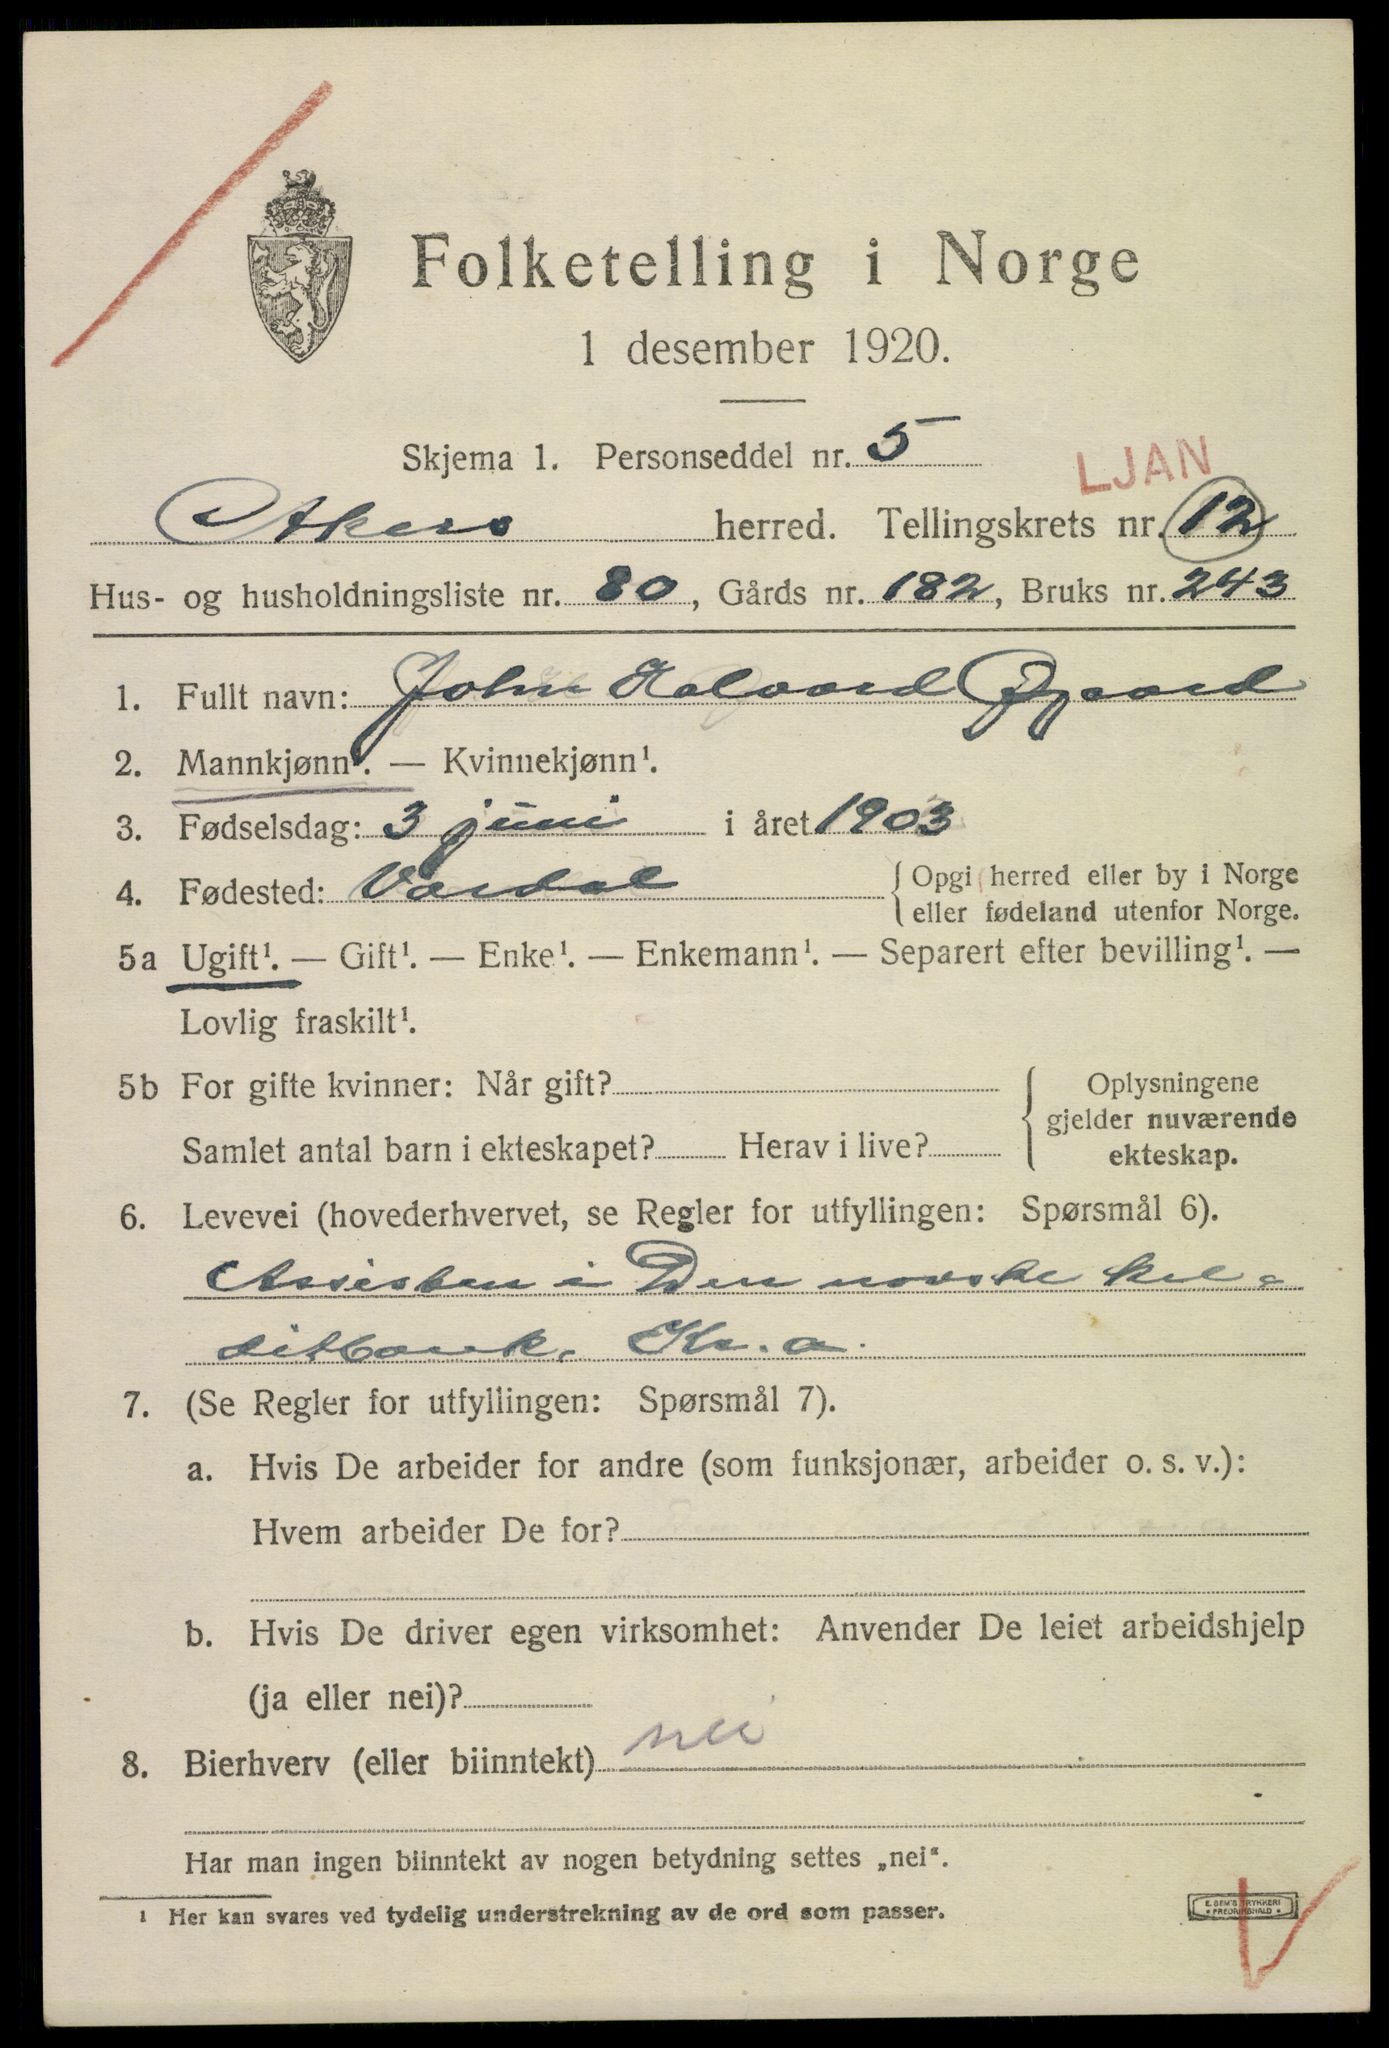 Folketelling i Norge
1 desember 1920.
Skjema 1. Personseddel nr. 5
LJAN
Akers herred. Tellingskrets nr. 12
Hus- og husholdningsliste nr. 80, Gårds nr. 182, Bruks nr. 243
1. Fullt navn: John Halvard
2. Mannkjønn¹. — Kvinnekjønn¹.
3. Fødselsdag: 3 juni i året 1903
4. Fødested: Vardal { Opgi herred eller by i Norge
eller fødeland utenfor Norge.
5a Ugift¹. — Gift¹. — Enke¹. — Enkemann¹. — Separert efter bevilling¹. —
Lovlig fraskilt¹.
5b For gifte kvinner: Når gift? { Oplysningene
gjelder nuværende
Samlet antal barn i ekteskapet? Herav i live? ekteskap.
6. Levevei (hovederhvervet, se Regler for utfyllingen: Spørsmål 6).
i Den norske
ditbank. Kr.a.
7. (Se Regler for utfyllingen: Spørsmål 7).
a. Hvis De arbeider for andre (som funksjonær, arbeider o. s. v.):
Hvem arbeider De for?
b. Hvis De driver egen virksomhet: Anvender De leiet arbeidshjelp
(ja eller nei)?
8. Bierhverv (eller biinntekt) nei
Har man ingen biinntekt av nogen betydning settes „nei“.
¹ Her kan svares ved tydelig understrekning av de ord som passer.
E. SEM'S TRYKKERI
FREDRIKSHALD